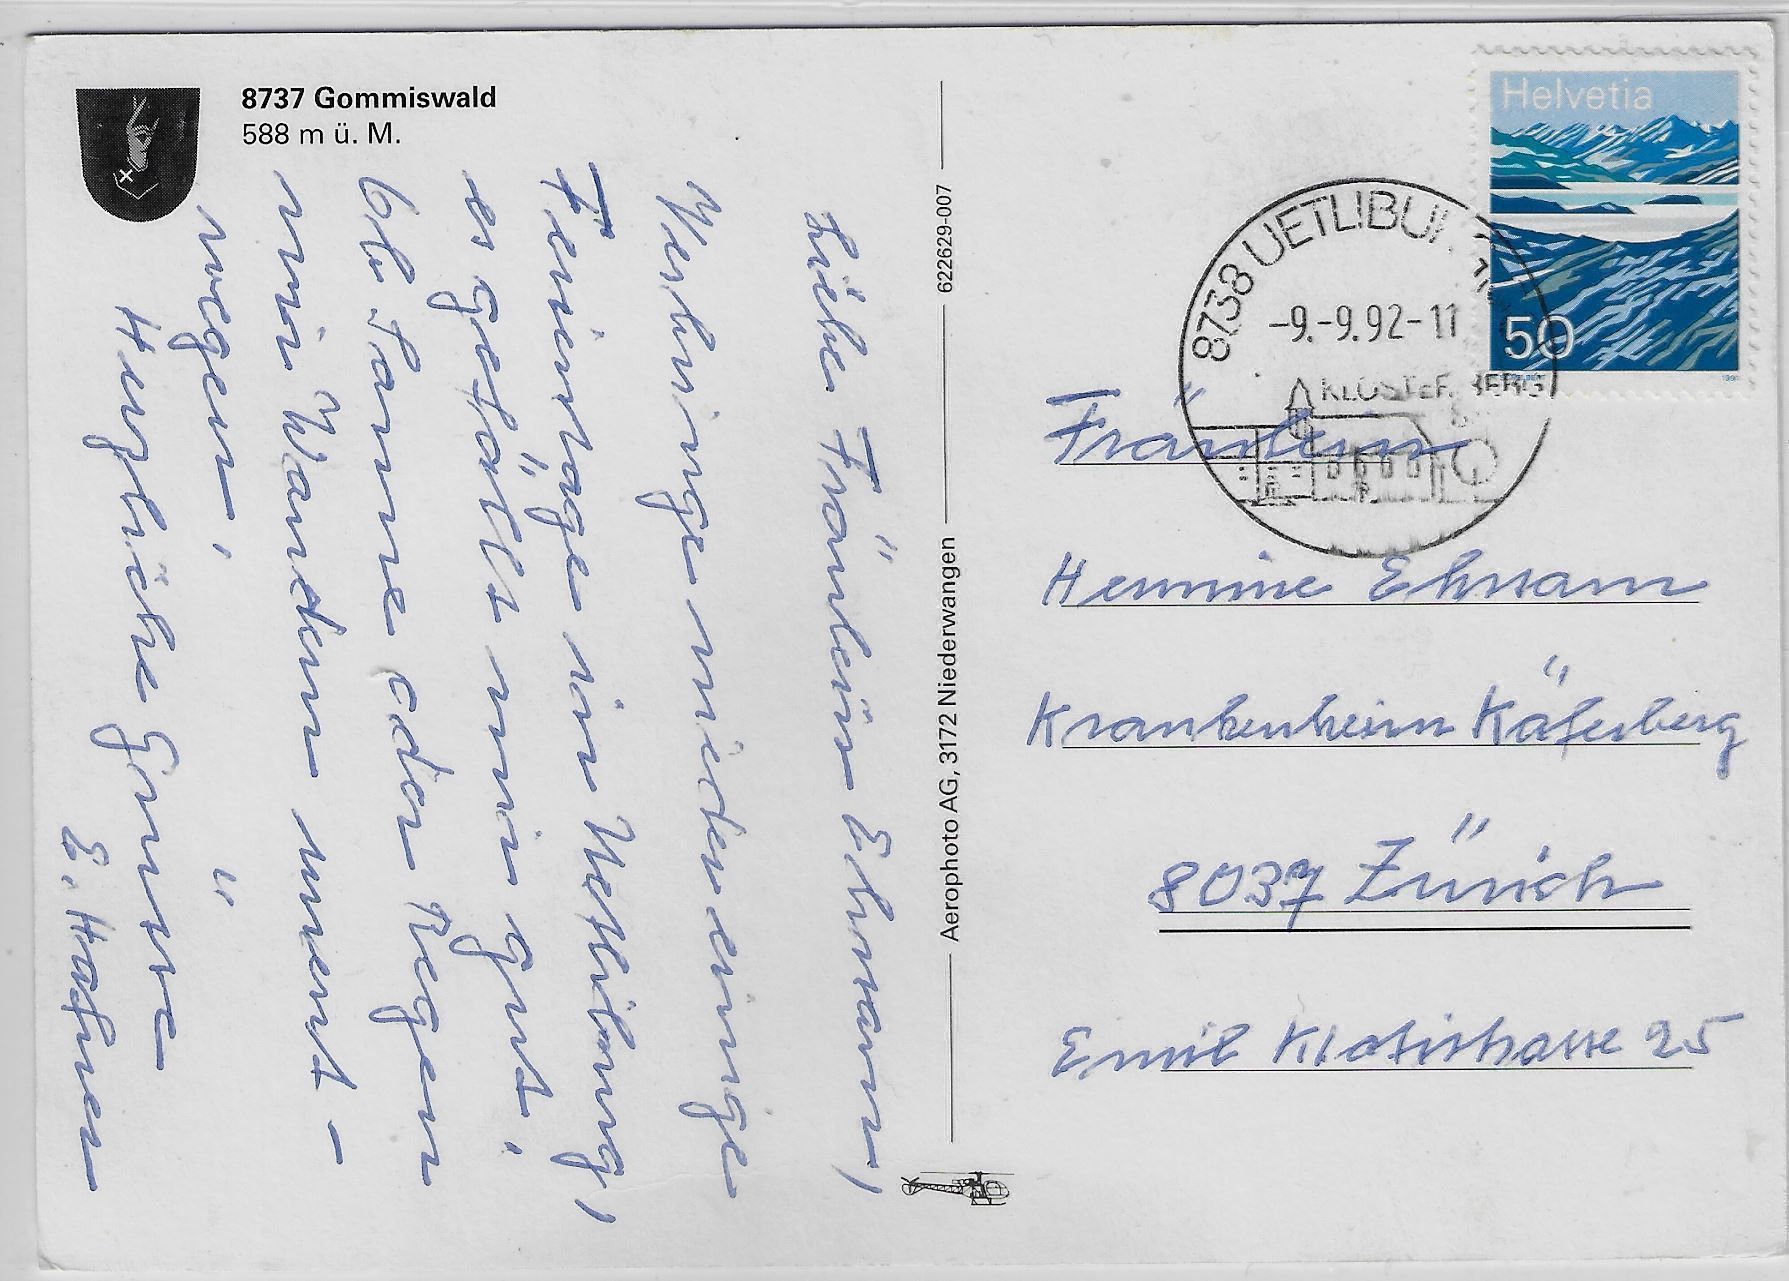 8737 Gommiswald
588 m ü. M.
Liebes Fräulein Ehrsam,
Verbringe wieder einige
Ferientage in Uetliburg,
es gefällt mir gut,
ob Sonne oder Regen
mir Wandern unent-
wegen,
Herzliche Grüsse
E. Hafner
622629-007
Aerophoto AG, 3172 Niederwangen
Helvetia
50
8738 UETLIBURG
-9.-9.92-11
KLOSTER BERG
Fräulein
Hermine Ehrsam
Krankenheim Käferberg
8037 Zürich
Emil Klötistrasse 25